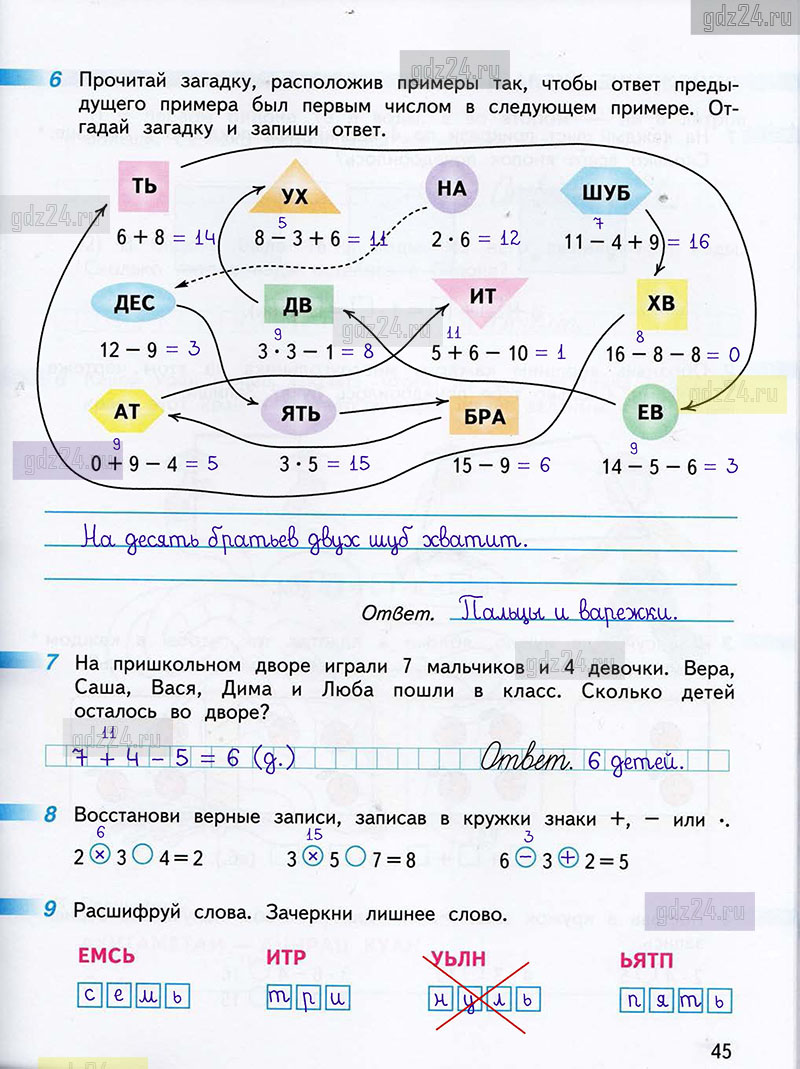 gdz24.ru
6 Прочитай загадку, расположив примеры так, чтобы ответ преды-
gdz24.ru
дущего примера был первым числом в следующем примере. От-
гадай загадку и запиши ответ.
ТЬ УХ НА ШУБ
gdz24.ru
5 7
6 + 8 = 14 8 − 3 + 6 = 11 2 · 6 = 12 11 − 4 + 9 = 16
ДЕС ДВ ИТ ХВ
gdz24.ru
9 11 8
12 − 9 = 3 3 · 3 − 1 = 8 5 + 6 − 10 = 1 16 − 8 − 8 = 0
gdz24.ru
АТ ЯТЬ БРА ЕВ
9 9
gdz24.ru
0 + 9 − 4 = 5 3 · 5 = 15 15 − 9 = 6 14 − 5 − 6 = 3
На десять братьев двух шуб хватит.
Ответ. Пальцы и варежки.
7 На пришкольном дворе играли 7 мальчиков и 4 девочки. Вера,
gdz24.ru
Саша, Вася, Дима и Люба пошли в класс. Сколько детей
осталось во дворе?
11
gdz24.ru
7 + 4 − 5 = 6 (д.) Ответ. 6 детей.
8 Восстанови верные записи, записав в кружки знаки +, − или ·.
6 15 3
2 × 3 4 = 2 3 × 5 7 = 8 6 − 3 + 2 = 5
9 Расшифруй слова. Зачеркни лишнее слово.
gdz24.ru
ЕМСЬ ИТР УЬЛН ЬЯТП
семь три нуль пять
45